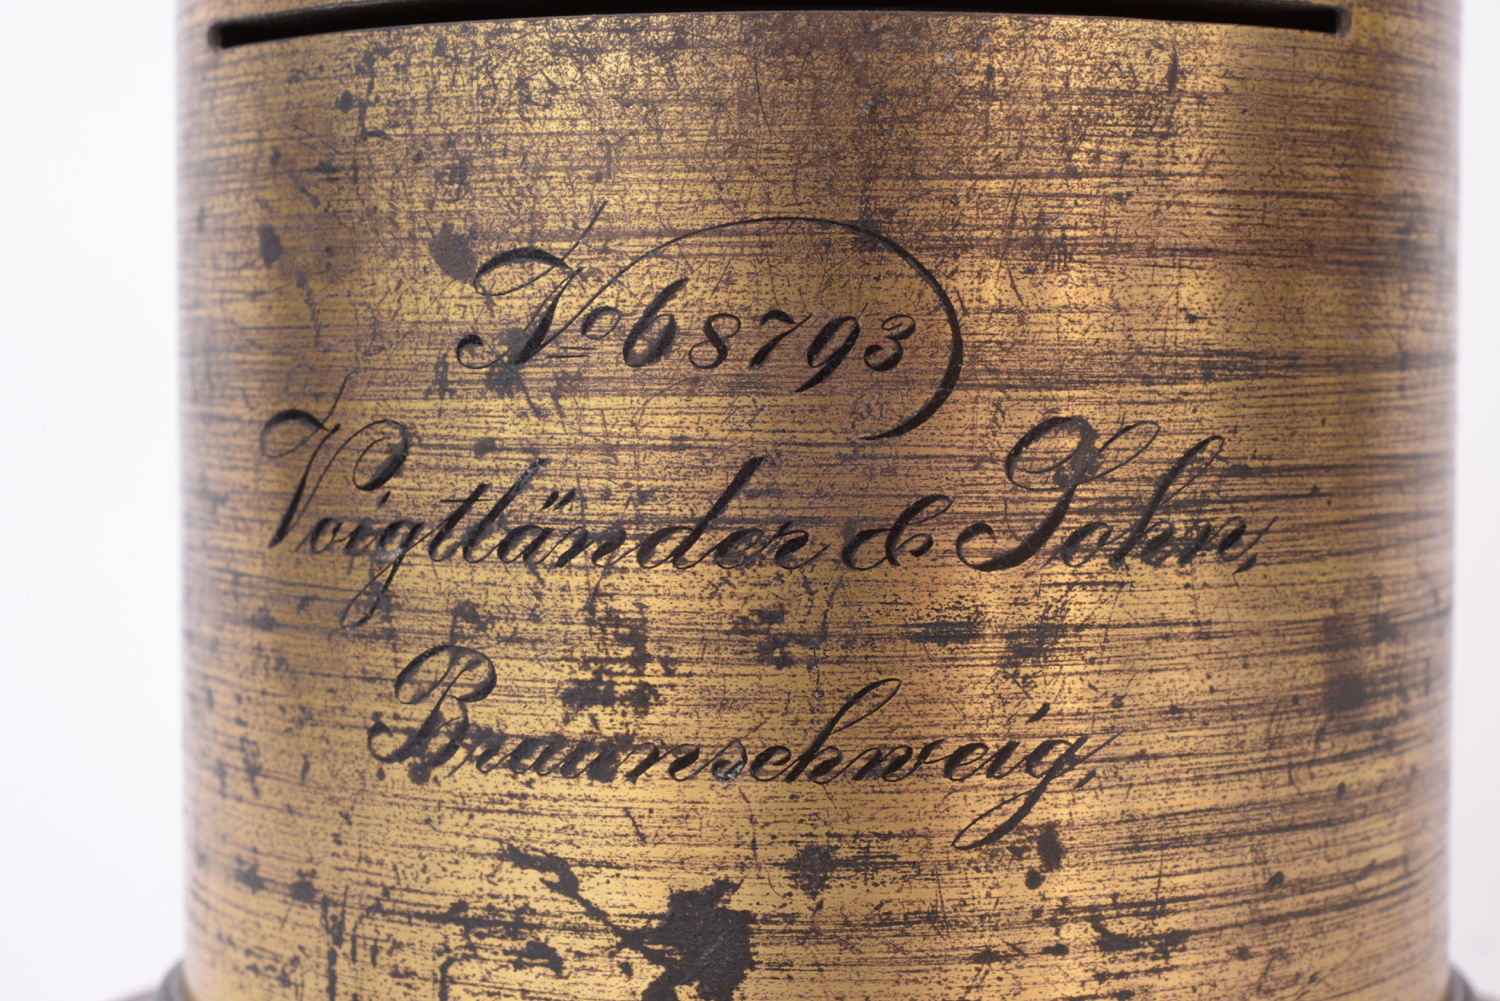 No 68793
Voigtländer & Sohn,
Braunschweig,